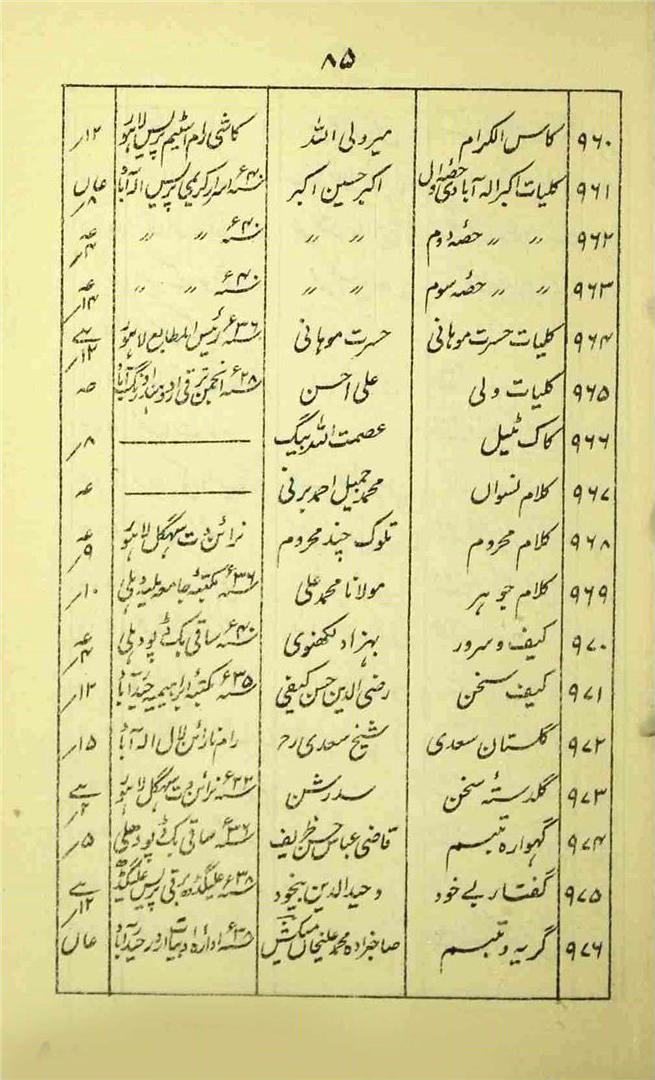 ۸۵
۹۶۰ کاس الکرام میر ولی اللہ کاشی رام اسٹیم پریس لاہور ۱۲ر
۹۶۱ کلیات اکبر الہ آبادی حصہ اول اکبر حسین اکبر ۶۴۰ سنہ اسرار کریمی پریس الہ آباد عاں ۸ر
۹۶۲ ″ ″ حصہ دوم ″ ″ ۶۴۰ سنہ ″ ″ عہ ۴ر
۹۶۳ ″ ″ حصہ سوم ″ ″ ۶۴۰ سنہ ″ ″ عہ ۱۴ر
۹۶۴ کلیات حسرت موہانی حسرت موہانی ۶۳۶ سنہ رئیس المطابع لاہور ے ۱۲ر
۹۶۵ کلیات ولی علی احسن ۶۲۸ سنہ انجمن ترقی اردو ہند اورنگ آباد صہ
۹۶۶ کاک ٹیل عصمت اللہ بیگ ——— ۸ر
۹۶۷ کلام نسواں محمد جمیل احمد برنی ——— عہ
۹۶۸ کلام محروم تلوک چند محروم نرائن دت سہگل لاہور عہ ۹ر
۹۶۹ کلام جوہر مولانا محمد علی ۶۳۶ سنہ مکتبہ جامعہ ملیہ دہلی ۱۰ر
۹۷۰ کیف و سرور بہزاد لکھنوی ۶۴۰ سنہ ساقی بک ڈپو دہلی عہ ۴ر
۹۷۱ کیف سخن رضی الدین حسن کیفی ۶۳۵ سنہ مکتبہ ابراہیمیہ حیدرآباد ۱۲ر
۹۷۲ گلستان سعدی شیخ سعدی رح رام نرائن لال الہ آباد ۱۵ر
۹۷۳ گلدستۂ سخن سدرشن ۶۳۳ سنہ نرائن دت سہگل لاہور ے ۲ر
۹۷۴ گہوارہ تبسم قاضی عباس حسن ظریف ۶۳۶ سنہ ساقی بک ڈپو دہلی ۵ر
۹۷۵ گفتار بے خود وحید الدین بیخود ۶۳۸ سنہ علیگڈھ برقی پریس علیگڈھ ے ۱۲ر
۹۷۶ گریہ و تبسم صاحبزادہ محمد علیخاں میکش ۶۳۵ سنہ ادارۂ ادبیات اردو حیدرآباد عاں